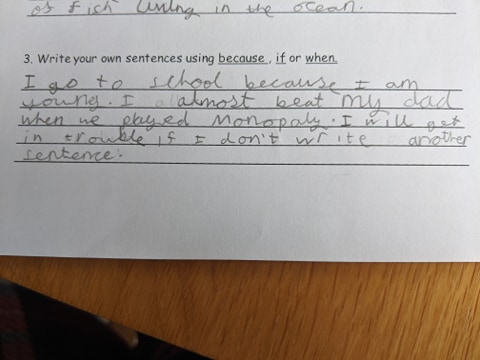 of fish living in the ocean.
3. Write your own sentences using because, if or when.
I go to school because I am
young. I almost beat my dad
when we played Monopaly. I will get
in trouble if I don't write another
sentence.